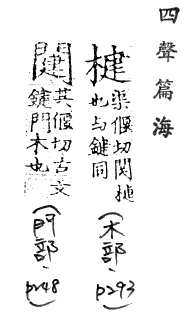 四聲篇海
楗 渠偃切関楗
也与鍵同
(木部,
p293)
闥 其偃切古文
鍵門木也
(門部,
p248)